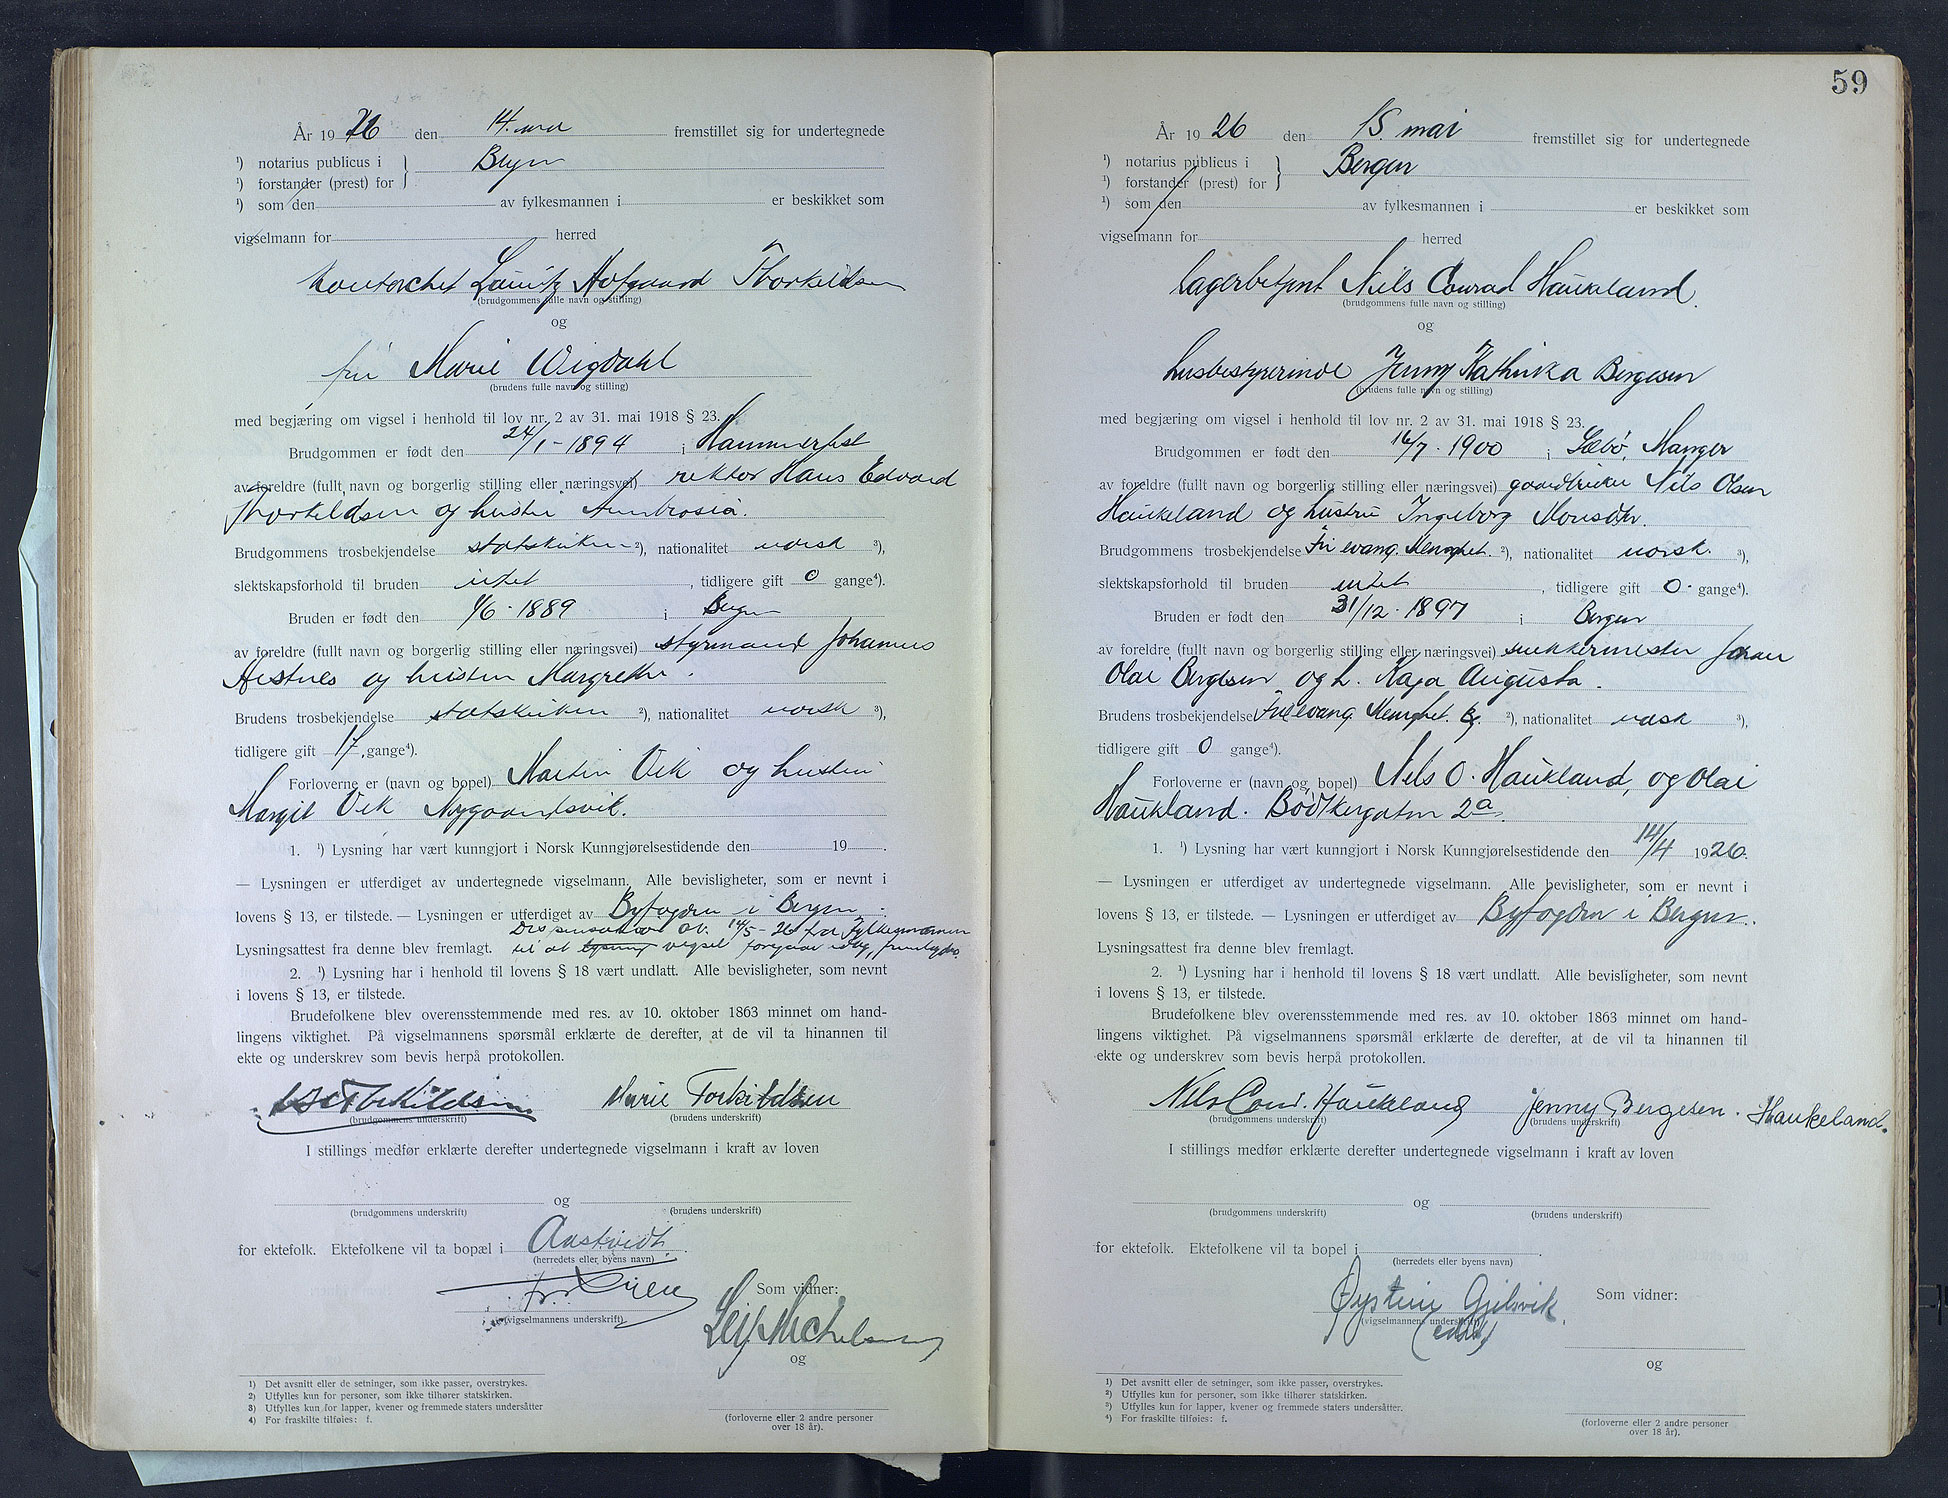 År 1926 den 14. mai fremstillet sig for undertegnede
¹) notarius publicus i } Bergen
¹) forstander (prest) for
¹) som den av fylkesmannen i er beskikket som
vigselmann for herred
kontorchef Lauritz Hofgaard Thorkildsen
(brudgommens fulle navn og stilling)
og
fru Marie Wigdahl
(brudens fulle navn og stilling)
med begjæring om vigsel i henhold til lov nr. 2 av 31. mai 1918 § 23.
Brudgommen er født den 24/1-1894 i Hammerfest
av foreldre (fullt navn og borgerlig stilling eller næringsvei) rektor Hans Edvard
Thorkildsen og hustru Ambrosia.
Brudgommens trosbekjendelse statskirken ²), nationalitet norsk ³),
slektskapsforhold til bruden intet, tidligere gift 0 gange⁴).
Bruden er født den 1/6-1889 i Bergen
av foreldre (fullt navn og borgerlig stilling eller næringsvei) styrmand Johannes
og hustru Margrethe.
Brudens trosbekjendelse statskirken ²), nationalitet norsk ³),
tidligere gift 1f. gange⁴).
Forloverne er (navn og bopel) Martin Vik og hustru
Margit Vik Nygaardsvik.
1. ¹) Lysning har vært kunngjort i Norsk Kunngjørelsestidende den 19 .
— Lysningen er utferdiget av undertegnede vigselmann. Alle bevisligheter, som er nevnt i
lovens § 13, er tilstede. — Lysningen er utferdiget av Byfogden i Bergen.
Dispensation av 14/5-26 fra Fylkesmannen
Lysningsattest fra denne blev fremlagt. til at lysning vigsel foregaar idag, fremlagdes.
2. ¹) Lysning har i henhold til lovens § 18 vært undlatt. Alle bevisligheter, som nevnt
i lovens § 13, er tilstede.
Brudefolkene blev overensstemmende med res. av 10. oktober 1863 minnet om hand-
lingens viktighet. På vigselmannens spørsmål erklærte de derefter, at de vil ta hinannen til
ekte og underskrev som bevis herpå protokollen.
Marie Torkildsen
(brudgommens underskrift) (brudens underskrift)
I stillings medfør erklærte derefter undertegnede vigselmann i kraft av loven
og
(brudgommens underskrift) (brudens underskrift)
for ektefolk. Ektefolkene vil ta bopæl i Aastveidt.
(herredets eller byens navn)
Som vidner:
(vigselmannens underskrift)
Leif Michelsen
og
1) Det avsnitt eller de setninger, som ikke passer, overstrykes.
2) Utfylles kun for personer, som ikke tilhører statskirken.
3) Utfylles kun for lapper, kvener og fremmede staters undersåtter
4) For fraskilte tilføies: f.
(forloverne eller 2 andre personer
over 18 år).
59
År 1926 den 15. mai fremstillet sig for undertegnede
¹) notarius publicus i } Bergen
¹) forstander (prest) for
¹) som den av fylkesmannen i er beskikket som
vigselmann for herred
lagerbetjent Niels Conrad Haukeland.
(brudgommens fulle navn og stilling)
og
husbestyrerinde Jenny Kathinka Bergesen
(brudens fulle navn og stilling)
med begjæring om vigsel i henhold til lov nr. 2 av 31. mai 1918 § 23.
Brudgommen er født den 16/7-1900 i Sæbø, Manger
av foreldre (fullt navn og borgerlig stilling eller næringsvei) gaardbruker Nils Olsen
Haukeland og hustru Ingeborg Monsdtr.
Brudgommens trosbekjendelse Fri evang. Menighet. ²), nationalitet norsk. ³),
slektskapsforhold til bruden intet, tidligere gift 0 gange⁴).
Bruden er født den 31/12-1897 i Bergen
av foreldre (fullt navn og borgerlig stilling eller næringsvei) snekkermester Johan
Olai Bergesen og h. Kaja Augusta.
Brudens trosbekjendelse Fri evang. Menighet. ²), nationalitet norsk ³),
tidligere gift 0 gange⁴).
Forloverne er (navn og bopel) Nils O. Haukland, og Olai
Haukland. Bødkergaten 2a.
1. ¹) Lysning har vært kunngjort i Norsk Kunngjørelsestidende den 14/4 1926.
— Lysningen er utferdiget av undertegnede vigselmann. Alle bevisligheter, som er nevnt i
lovens § 13, er tilstede. — Lysningen er utferdiget av Byfogden i Bergen.
Lysningsattest fra denne blev fremlagt.
2. ¹) Lysning har i henhold til lovens § 18 vært undlatt. Alle bevisligheter, som nevnt
i lovens § 13, er tilstede.
Brudefolkene blev overensstemmende med res. av 10. oktober 1863 minnet om hand-
lingens viktighet. På vigselmannens spørsmål erklærte de derefter, at de vil ta hinannen til
ekte og underskrev som bevis herpå protokollen.
Nils Conr. Haukeland Jenny Bergesen. Haukeland.
(brudgommens underskrift) (brudens underskrift)
I stillings medfør erklærte derefter undertegnede vigselmann i kraft av loven
og
(brudgommens underskrift) (brudens underskrift)
for ektefolk. Ektefolkene vil ta bopel i .
(herredets eller byens navn)
Øystein Gjelsvik Som vidner:
(vigselmannens underskrift)
og
1) Det avsnitt eller de setninger, som ikke passer, overstrykes.
2) Utfylles kun for personer, som ikke tilhører statskirken.
3) Utfylles kun for lapper, kvener og fremmede staters undersåtter.
4) For fraskilte tilføies: f.
(forloverne eller 2 andre personer
over 18 år).